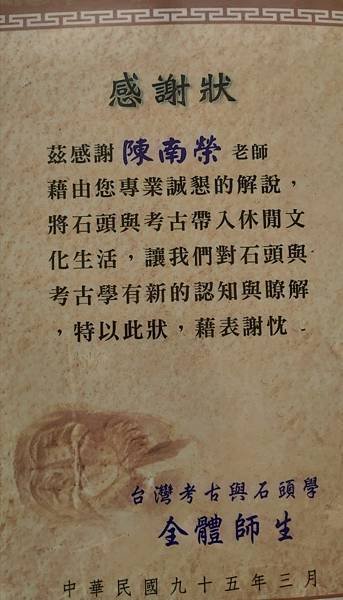 感謝狀
茲感謝 陳南榮 老師
藉由您專業誠懇的解說，
將石頭與考古帶入休閒文
化生活，讓我們對石頭與
考古學有新的認知與瞭解
，特以此狀，藉表謝忱
台灣考古與石頭學
全體師生
中華民國九十五年三月